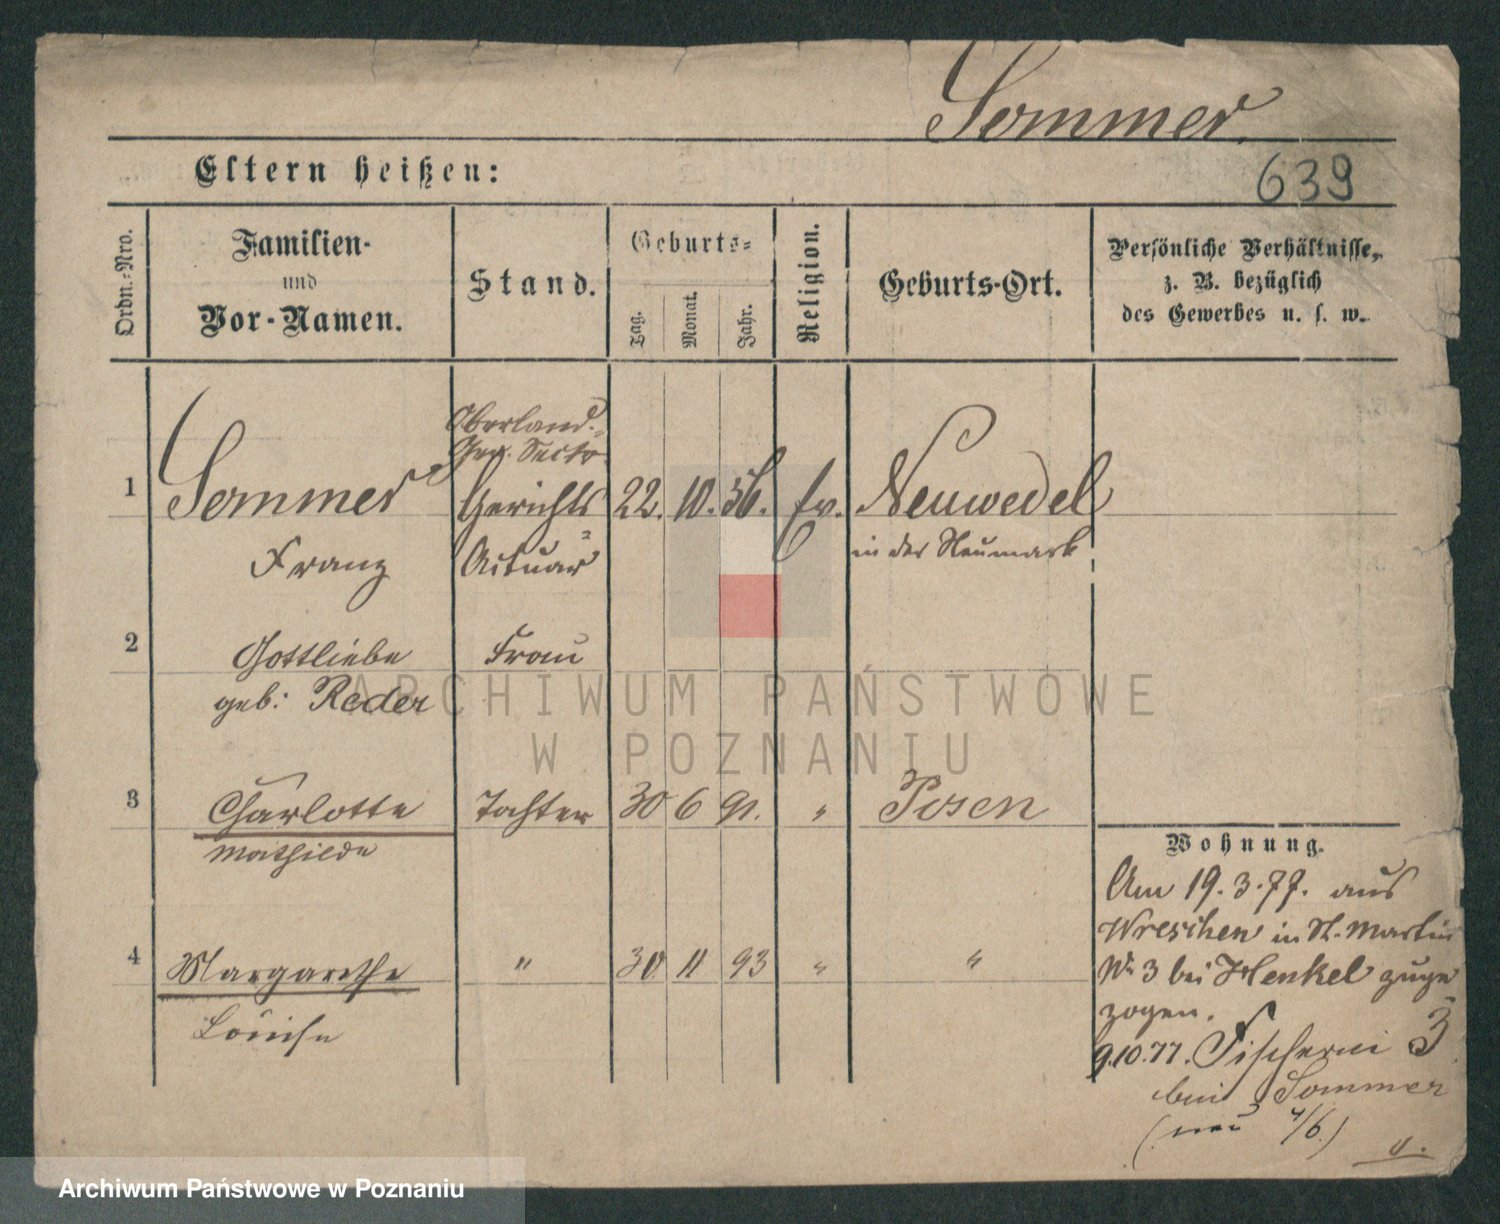 Sommer.
Eltern heißen:
639
Ordn.-Nro.
Familien-
und
Vor-Namen.
Stand.
Geburts-
Tag.
Monat.
Jahr.
Religion.
Geburts-Ort.
Persönliche Verhältnisse,
z. B. bezüglich
des Gewerbes u. s. w.
Oberland-
Ger. Sectr.
1 Sommer Gerichts 22. 10. 56. Ev. Neuwedel
Franz Actuar in der Neumark
2 Gottliebe Frau
geb: Reder
3 Charlotte Tochter 30 6 91. " Posen
Mathilde
4 Margarethe " 30 11 93 " "
Louise
Wohnung.
Am 19.3.77. aus
Wreschen in St. Martin
Nr 3 bei Henkel zuge
zogen.
9.10.77. Fischerei 3
bei Sommer
(neu 4/6.)
ARCHIWUM PAŃSTWOWE
W POZNANIU
Archiwum Państwowe w Poznaniu